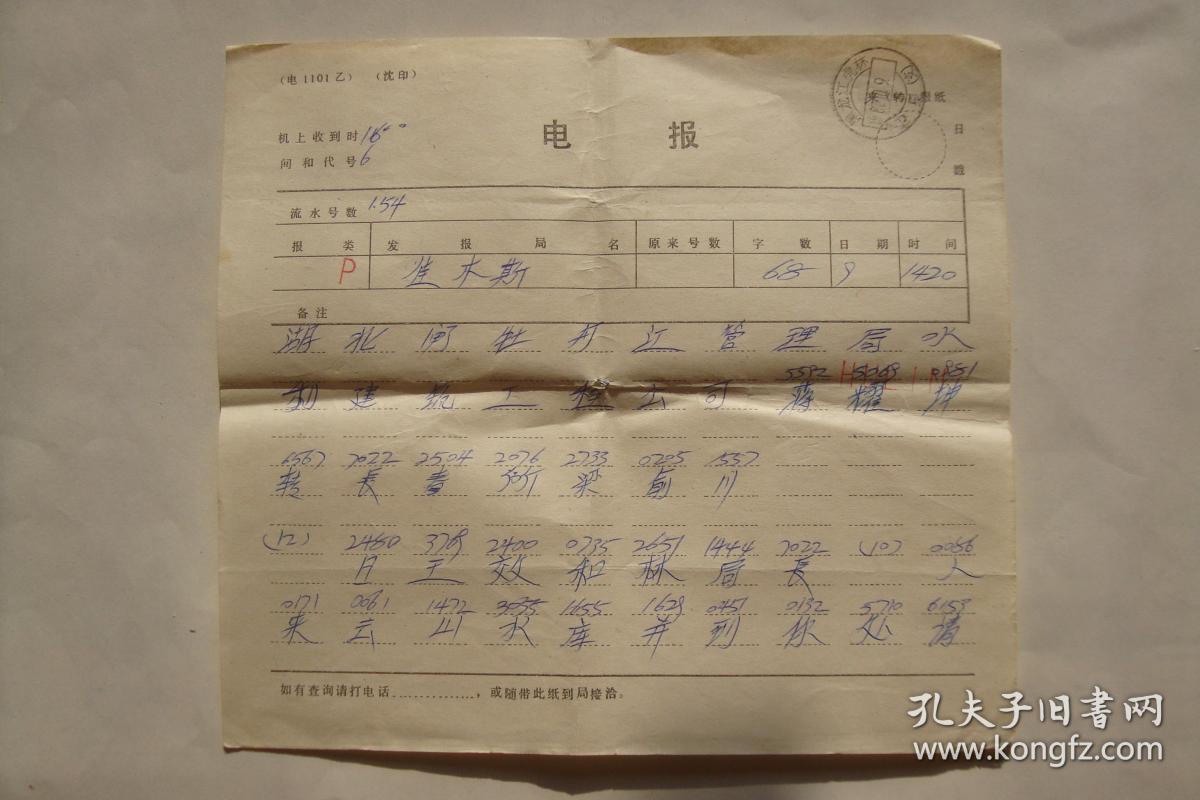 （电1101乙） （沈印）
来（转）报纸
日
戳
机上收到时
间和代号 6
电 报
流水号数 154
报 类 发 报 局 名 原来号数 字 数 日 期 时 间
P 佳木斯 68 9 1420
备注
湖北 牡丹江营理局水
5592 0951
利建筑工程公司蒋耀坤
6567 7022 2504 2076 2733 0205 1557
转長春 梁俞川
(12) 2480 3769 2400 0735 2651 1444 7022 (10) 0086
日王效和林局長 人
0171 0061 1472 1655 1629 0451 0132 5710 6153
来云山水库并到你处請
如有查询请打电话.............，或随带此纸到局接洽。
孔夫子旧書网
www.kongfz.com